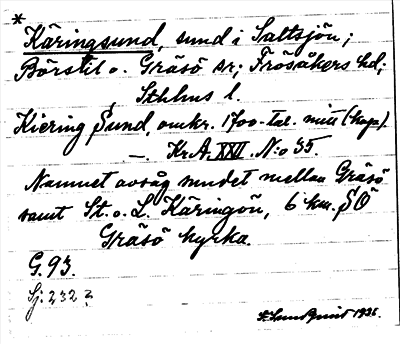 *
Käringsund, sund i Saltsjön;
Börstil o. Gräsö sr; Frösåkers hd;
Sthlms l.
Kiering Sund, omkr. 1700-tal. mitt (kopia).
KrA. XXVI. N:o 35.
Namnet avsåg sundet mellan Gräsö
samt St. o. L. Käringön, 6 km. SÖ
Gräsö kyrka.
G. 93.
Sj: 232 ?
Lundquist 1936.